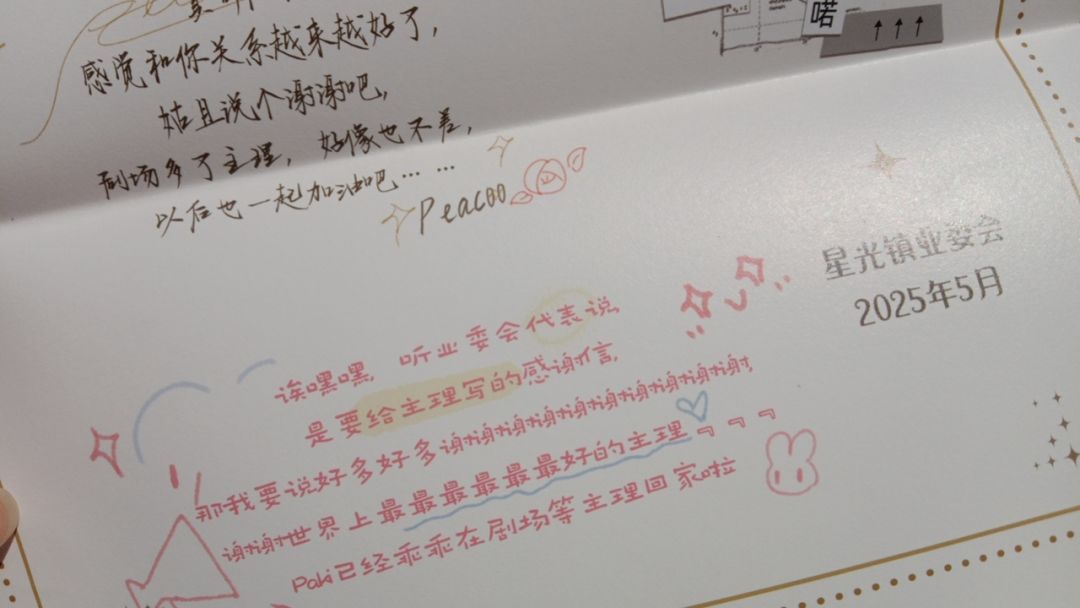 喏
感觉和你关系越来越好了，
姑且说个谢谢吧，
剧场多了主理，好像也不差，
以后也一起加油吧……
Peacoo
星光镇业委会
2025年5月
诶嘿嘿，听业委会代表说，
是要给主理写的感谢信，
那我要说好多好多谢谢谢谢谢谢谢谢谢谢，
谢谢世界上最最最最最最好的主理~~~
Paki已经乖乖在剧场等主理回家啦